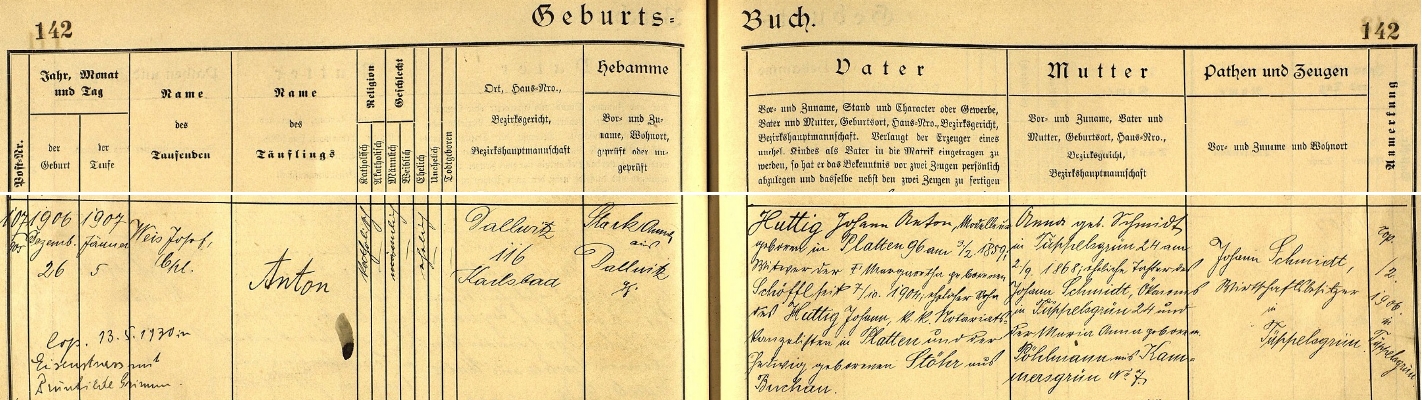 142
Geburts-
Buch.
142
Post-Nr.
Jahr, Monat
und Tag
der
Geburt
der
Taufe
Name
des
Taufenden
Name
des
Täuflings
Religion
Katholisch
Akatholisch
Geschlecht
Männlich
Weiblich
Ehelich
Unehelich
Todtgeboren
Ort, Haus-Nro.,
Bezirksgericht,
Bezirkshauptmannschaft
Hebamme
Vor- und Zu-
name, Wohnort,
geprüft oder un-
geprüft
Vater
Vor- und Zuname, Stand und Character oder Gewerbe,
Vater und Mutter, Geburtsort, Haus-Nro., Bezirksgericht,
Bezirkshauptmannschaft. Verlangt der Erzeuger eines
unehel. Kindes als Vater in die Matrik eingetragen zu
werden, so hat er das Bekenntnis vor zwei Zeugen persönlich
abzulegen und dasselbe nebst den zwei Zeugen zu fertigen
Mutter
Vor- und Zuname, Vater und
Mutter, Geburtsort, Haus-Nro.,
Bezirksgericht,
Bezirkshauptmannschaft
Pathen und Zeugen
Vor- und Zuname und Wohnort
Anmerkung
107
1906
Dezemb.
26
1907
Jänner
5
Weis Josef,
Cpl.
Anton
katholisch
männlich
ehelich
Dallwitz
116
Karlsbad
Stark Anna
aus
Dallwitz
gpr.
Huttig Johann Anton, Modelleur
geboren in Platten 96 am 3/2 1859;
Witwer der † Margaretha geborenen
Schöffl seit 7/10. 1904; ehelicher Sohn
des Huttig Johann, k. k. Notariats-
kanzelisten in Platten und der
Hedwig geborenen Stöhr aus
Buchau.
Anna geb. Schmidt
in Tüppelsgrün 24 am
2/9. 1868; eheliche Tochter des
Johann Schmidt,
in Tüppelsgrün 24 und
der Maria Anna geboren
Pöhlmann aus Kam-
mersgrün № 7.
Johann Schmidt,
Wirtschaftsbesitzer
in
Tüppelsgrün.
Cop.
/2.
1906
in
Tüppelsgrün
Cop. 13.5.1930 in
mit